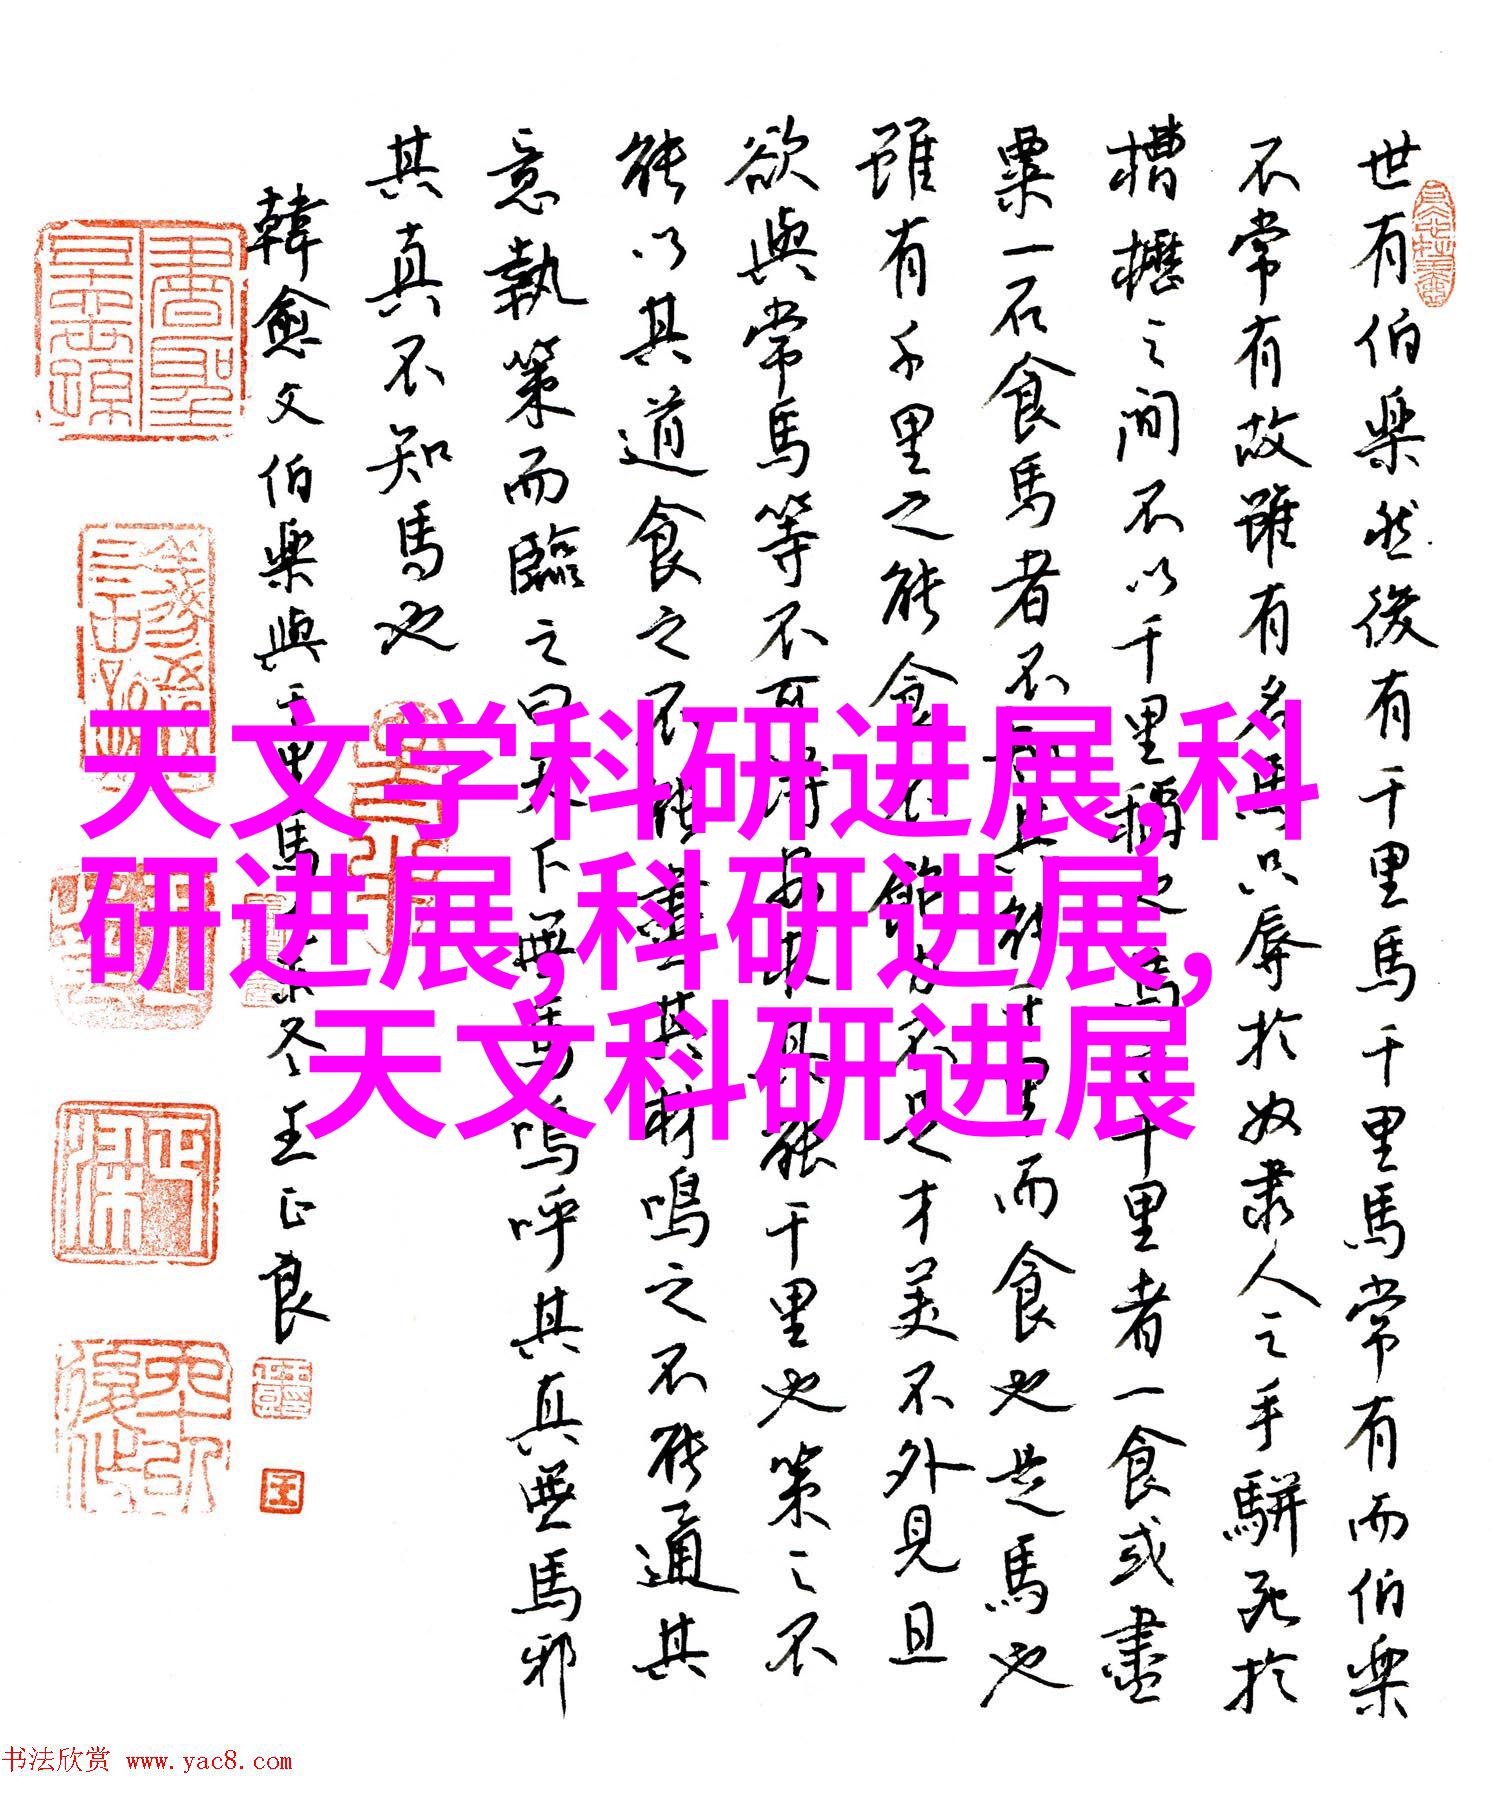 世有伯樂然後有千里馬千里馬常有而伯樂
不常有故雖有名馬只辱於奴隶人之手駢死於
槽櫪之间不以千里稱也馬之千里者一食或盡
粟一石食馬者不知其能千里而食也是馬也
雖有千里之能食不飽力不足才美不外見且
欲與常馬等不可得安求其能千里也策之不
能以其道食之不能盡其材鳴之不能通其
意執策而臨之曰天下無馬嗚呼其真無馬邪
其真不知馬也
韓愈文伯樂與千里馬 冬王正良
天文学科研进展,科
研进展,科研进展,
天文科研进展
书法欣赏 www.yac8.com